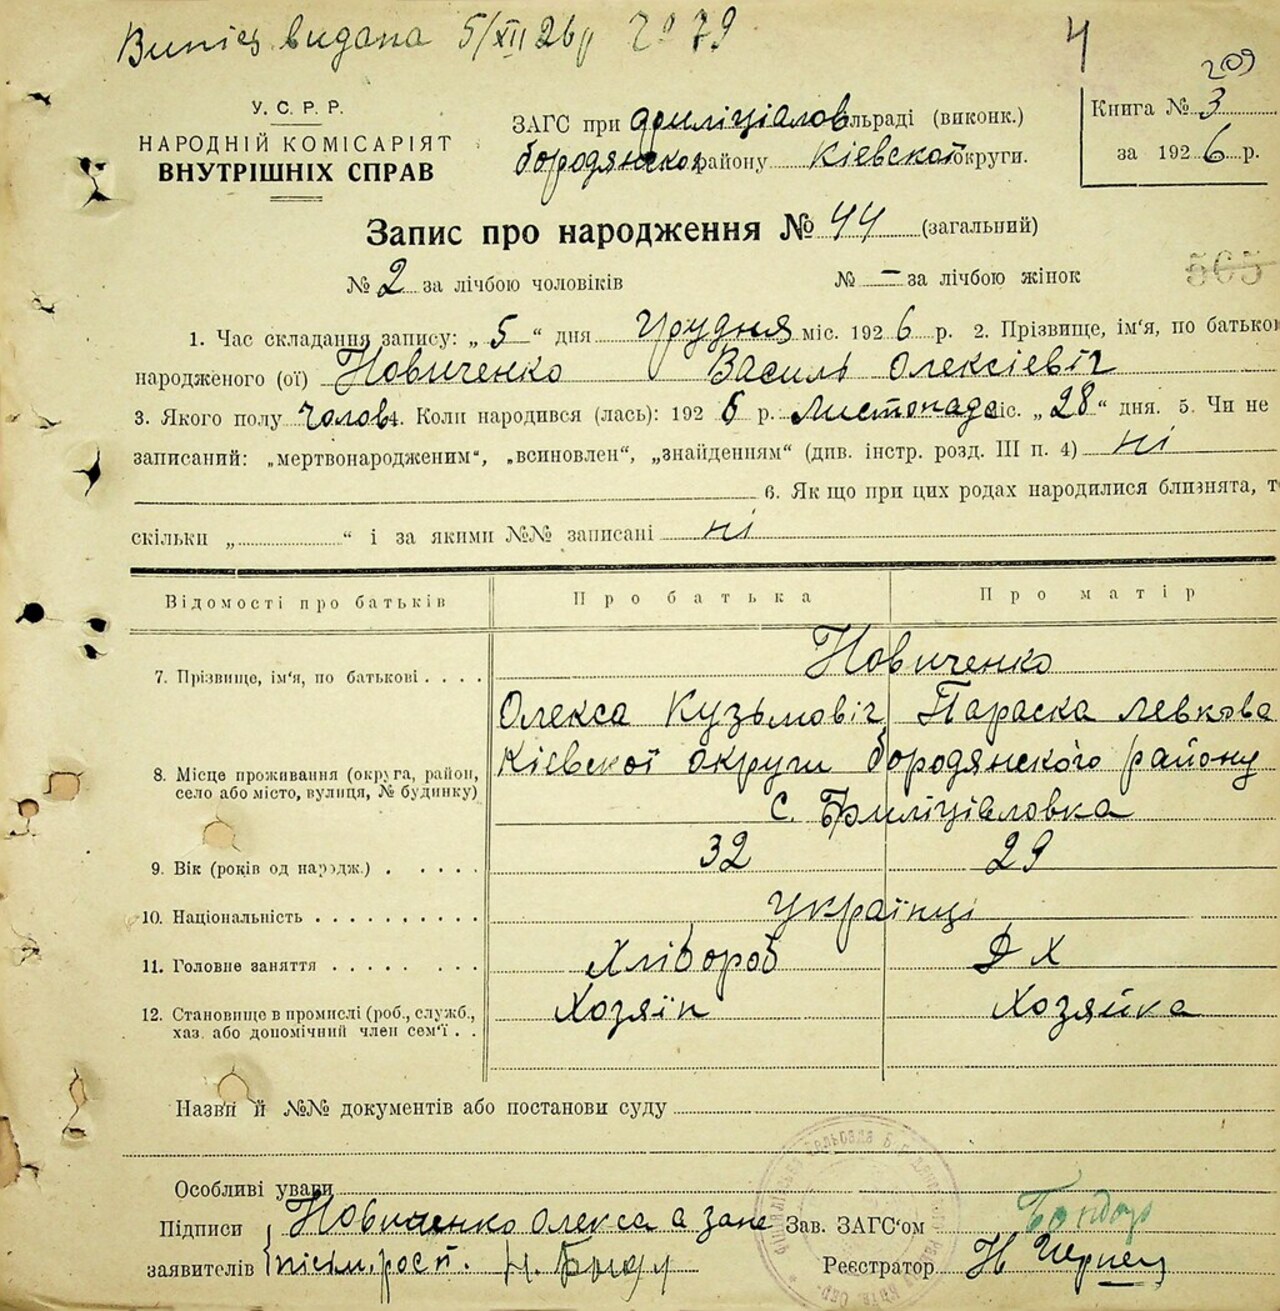 Випись видана 5/XII 26р № 79
4
209
У. С. Р. Р.
НАРОДНІЙ КОМІСАРІЯТ
ВНУТРІШНІХ СПРАВ
ЗАГС при Філіціалов льраді (виконк.)
бородянской району Кіевской округи.
Книга № 3
за 1926 р.
Запис про народження № 44 (загальний)
№ 2 за лічбою чоловіків № — за лічбою жінок
565
1. Час складання запису: „ 5 “ дня Грудня міс. 1926 р. 2. Прізвище, ім‘я, по батькові
народженого (ої) Новиченко Василь Олексіевіч
3. Якого полу Чолов 4. Коли народився (лась): 1926 р. Листопада міс. „28“ дня. 5. Чи не
записаний: „мертвонародженим“, „всиновлен“, „знайденням“ (див. інстр. розд. III п. 4) ні
6. Як що при цих родах народилися близнята, то
скільки „ “ і за якими №№ записані ні
Відомості про батьків Про батька Про матір
7. Прізвище, ім‘я, по батькові . . . . Новиченко
Олекса Кузьмовіч Параска Левкова
8. Місце проживання (округа, район, село або місто, вулиця, № будинку) Кіевської округи бородянского району
с. Філіціаловка
9. Вік (років од народж.) . . . . . 32 29
10. Національність . . . . . . . . . . українці
11. Головне заняття . . . . . . . . . Хлібороб Д Х
12. Становище в промислі (роб., служб., хаз. або допомічний член сем‘ї . . Хозяїн Хозяйка
Назви й №№ документів або постанови суду
Особливі уваги
Підписи Новиченко Олекса а за не Зав. ЗАГС‘ом Бондар
заявителів пісьм. росп. Н. Реєстратор Н Чернец